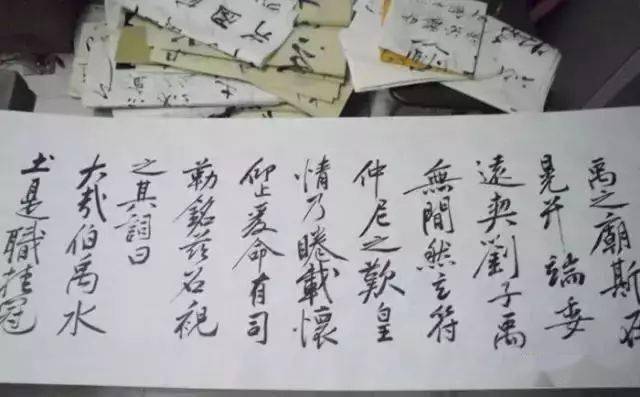 禹之廟斯
冕弁端委
遠契劉子禹
無間然玄符
仲尼之歎皇
情乃睠載懷
仰止爰命有司
勒銘茲石祝
之其詞曰
大哉伯禹水
土是職挂冠